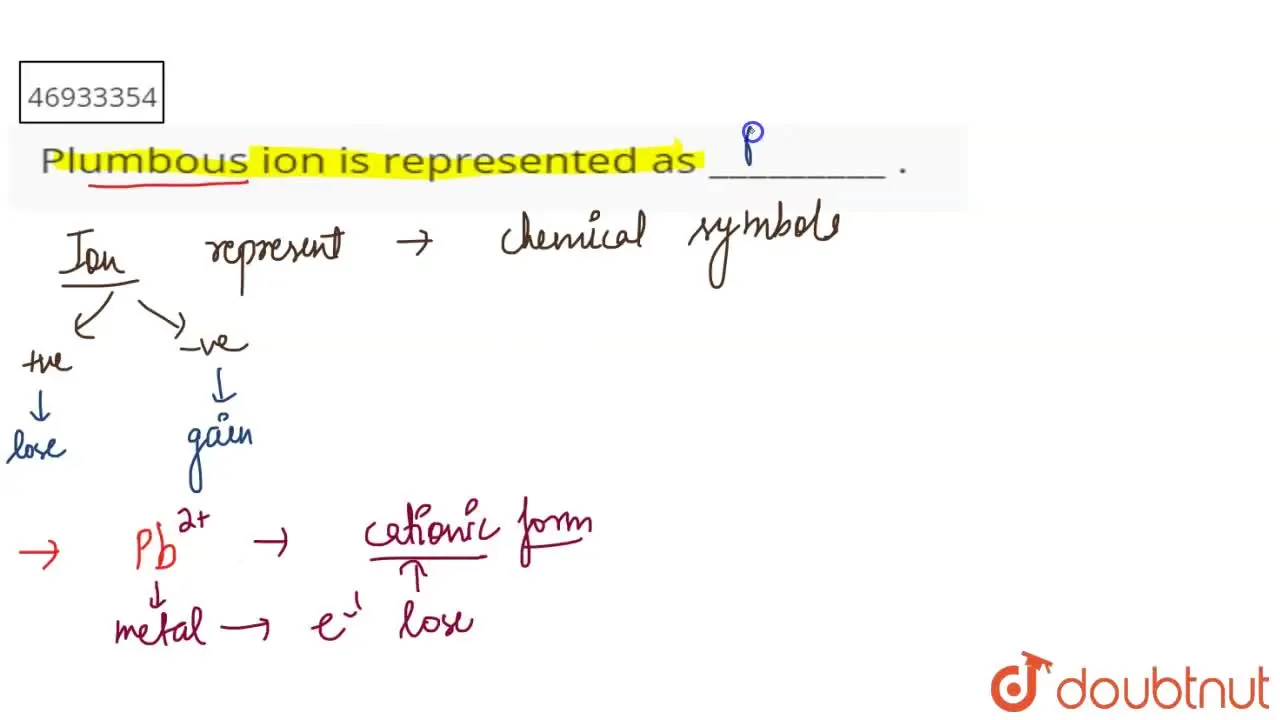 46933354
P
Plumbous ion is represented as _________ .
Ion represent → chemical symbols
+ve -ve
↓ ↓
lose gain
→ Pb2+ → cationic form
↓ ↑
metal → e-1 lose
doubtnut